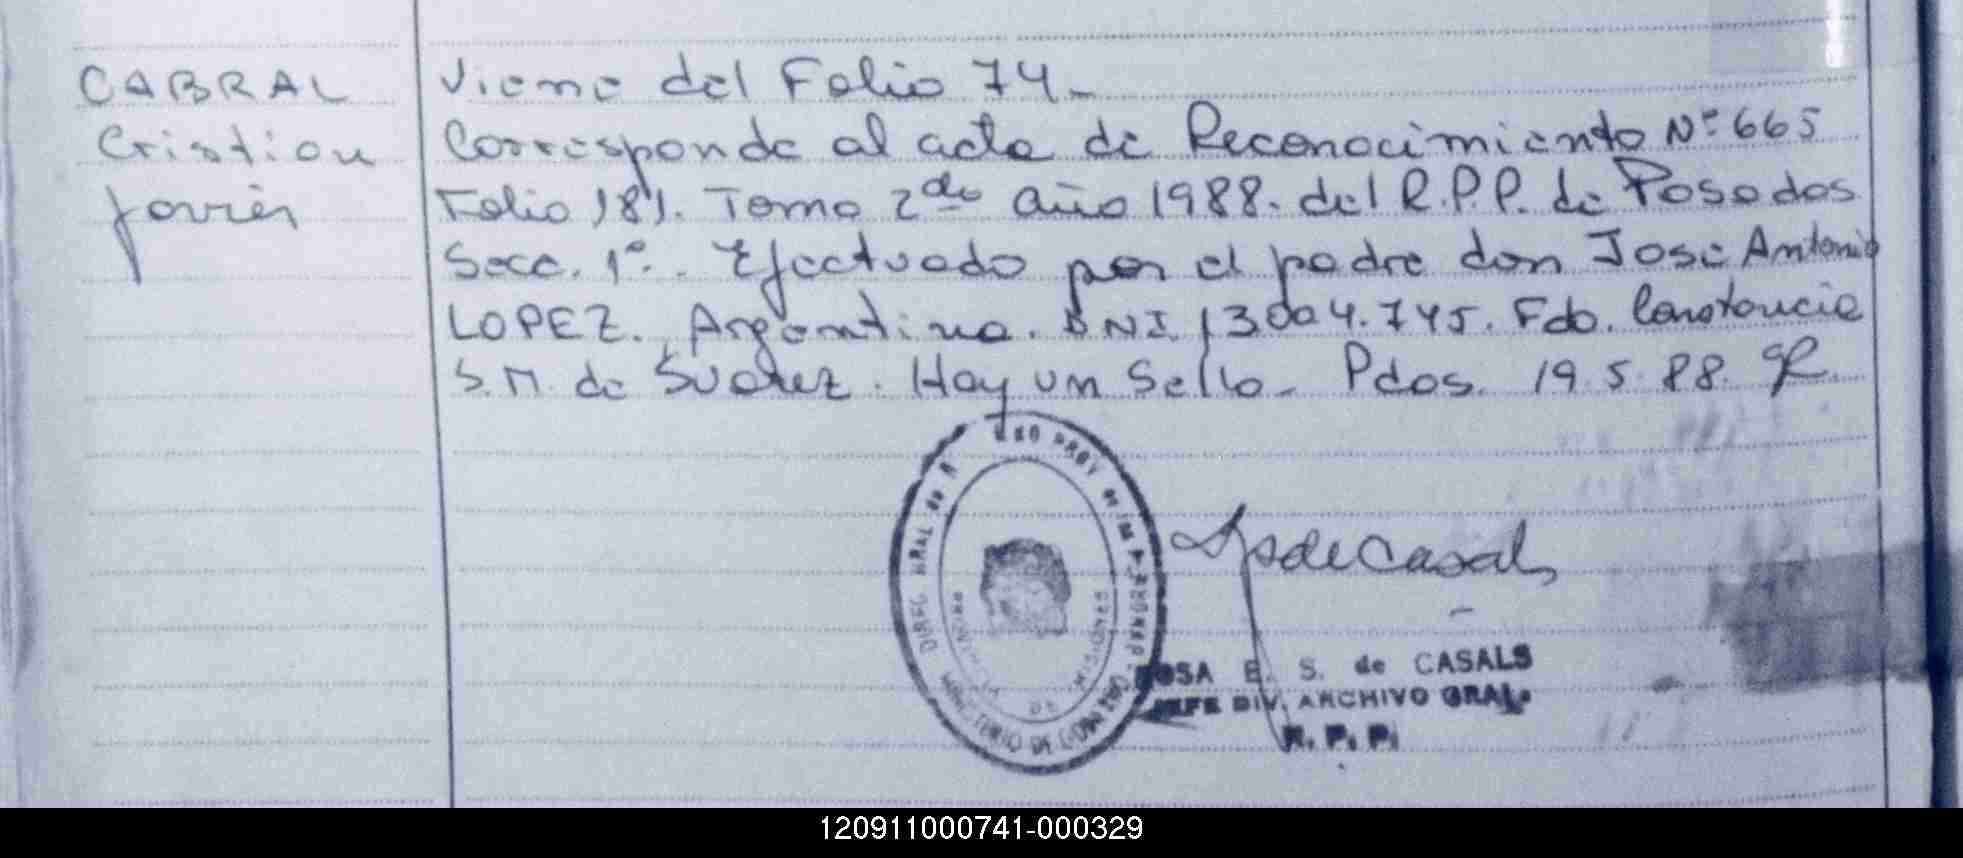 CABRAL
Cristian
Javier
Viene del Folio 74.-
Corresponde al acta de Reconocimiento Nº 665
Folio 181. Tomo 2do año 1988. del R.P.P. de Posadas
Secc. 1º. Efectuado por el padre don José Antonio
LOPEZ. Argentino. DNI 13.004.745. Fdo. Constancia
S.M. de Suarez. Hay un Sello. Pdos. 19.5.88.
MINISTERIO DE GOBIERNO
PROVINCIA DE MISIONES
E. S. de CASALS
JEFE DIV. ARCHIVO GRAL.
R. P. P.
120911000741-000329